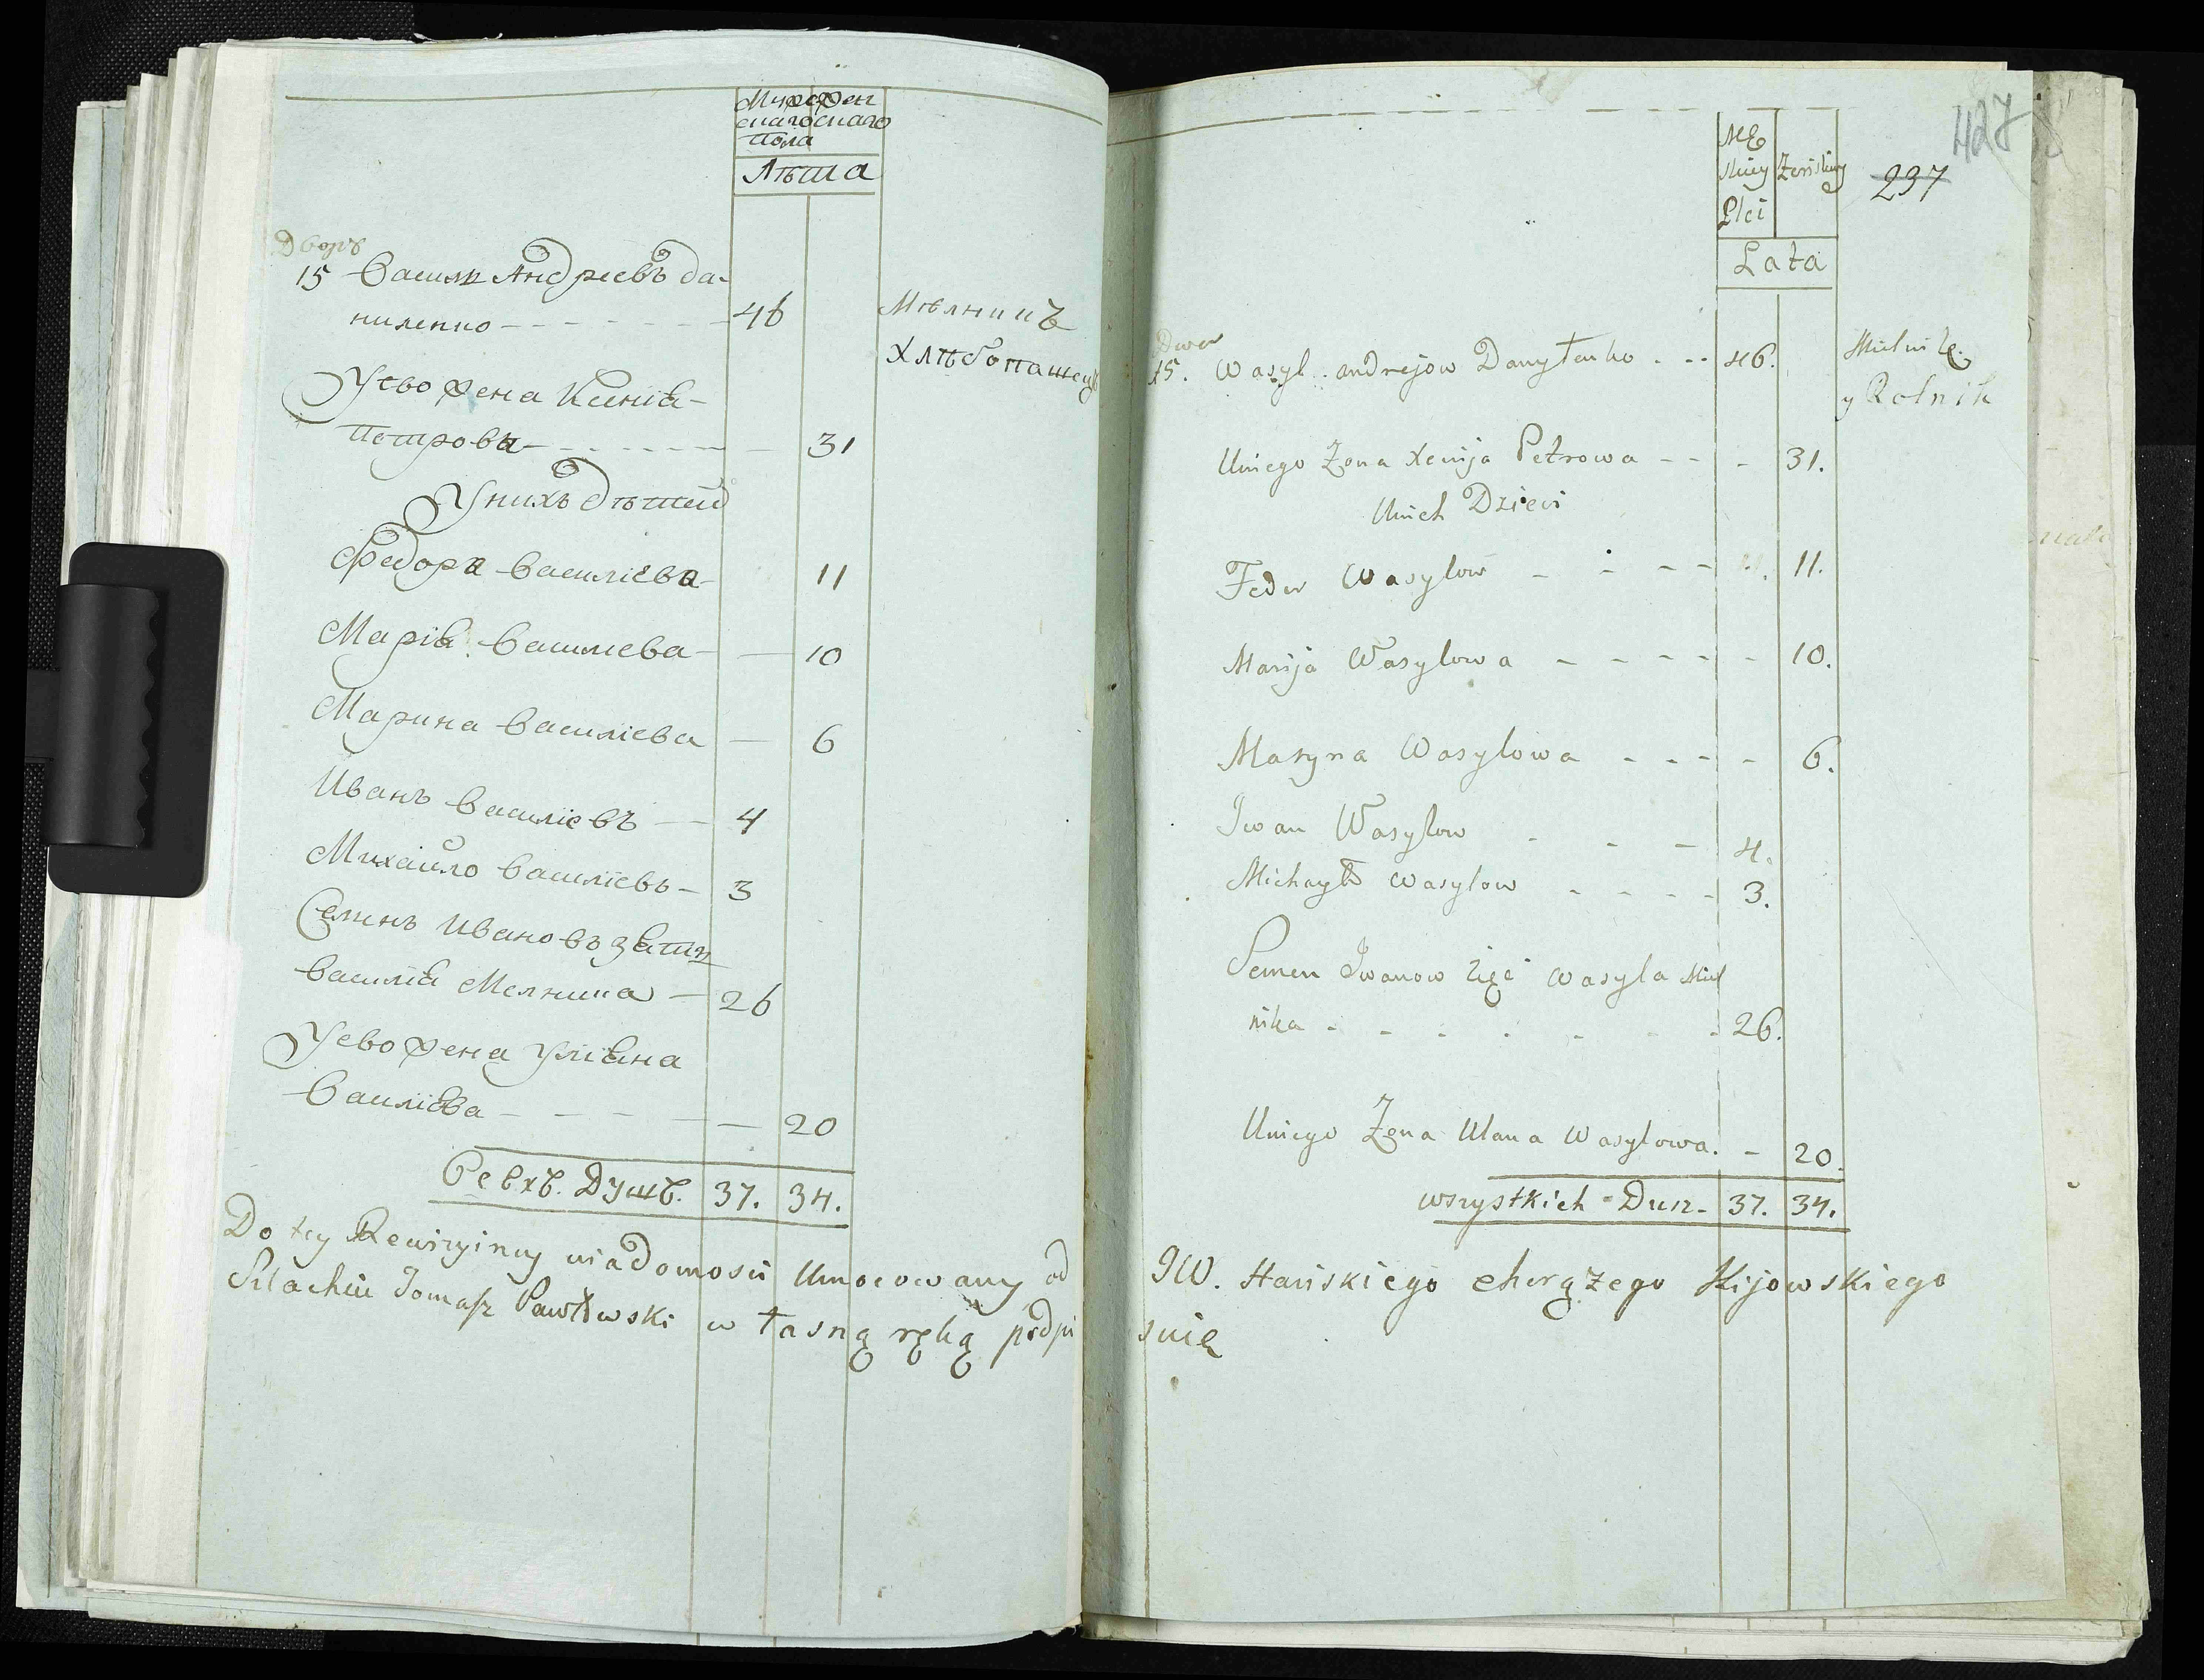 Муж жен
скаго скаго
пола
Лѣта
Дворъ
15 Василь Андреевъ да-
ниленко - - - 46
Мѣлникъ
Хлѣбопашецъ
У ево жена Ксенія
Петрова - - - — 31
У нихъ дѣтей
Федора Василіева - 11
Марія Василиева - — 10
Марина Василіева — 6
Иванъ Василіевъ — 4
Михайло Василіевъ - 3
Семенъ Ивановъ зять
Василія Мелника — 26
У ево жена Уліяна
Василіева - — 20
Всехъ. Душъ. 37. 34.
Do tey Rewizyiney wiadomosci Umocowany od
Szlachcic Tomasz Pawłowski w łasną ręką podpi
427
237
Mę
skiey Zenskiey
Płci
Lata
Dwor
15. Wasyl andrejow Danyłenko . - - 46.
Mielnik
y Rolnik
Uniego Zona Xenija Petrowa - - - 31.
Unich Dzieci
Fedor Wasylow - - - - 11.
Marija Wasylowa - - - - - 10.
Maryna Wasylowa - - - - 6.
Iwan Wasylow - - - 4.
Michayło Wasylow - - - - 3.
Semen Iwanow zięć Wasyla Miel
nika - - - - - - 26.
Uniego Zona Ulana Wasylowa. - 20.
wszystkich - Dusz - 37. 34.
JW. Hanskiego chorążego Kijowskiego
suię